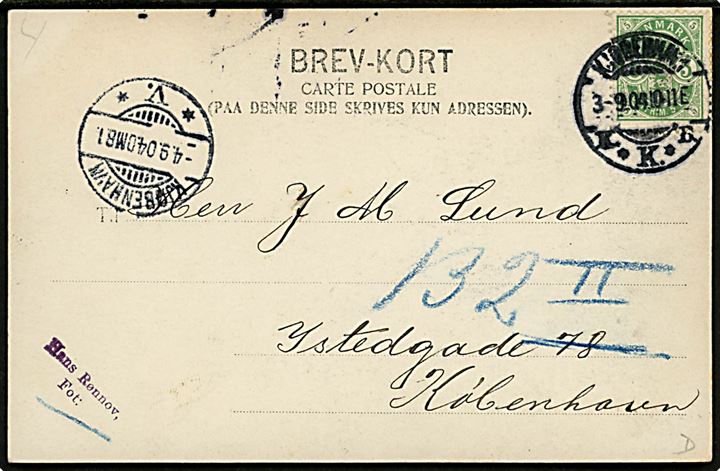 4
BREV-KORT
CARTE POSTALE
(PAA DENNE SIDE SKRIVES KUN ADRESSEN).
5 DANMARK 5
KJØBENHAVN
3-9.04.10-11E
* K. *
* V. *
-4.9.04.OMB1.
KJØBENHAVN
Til Herr J M Lund
132 II
Istedgade 78
København
Hans Rønnov,
Fot:
D